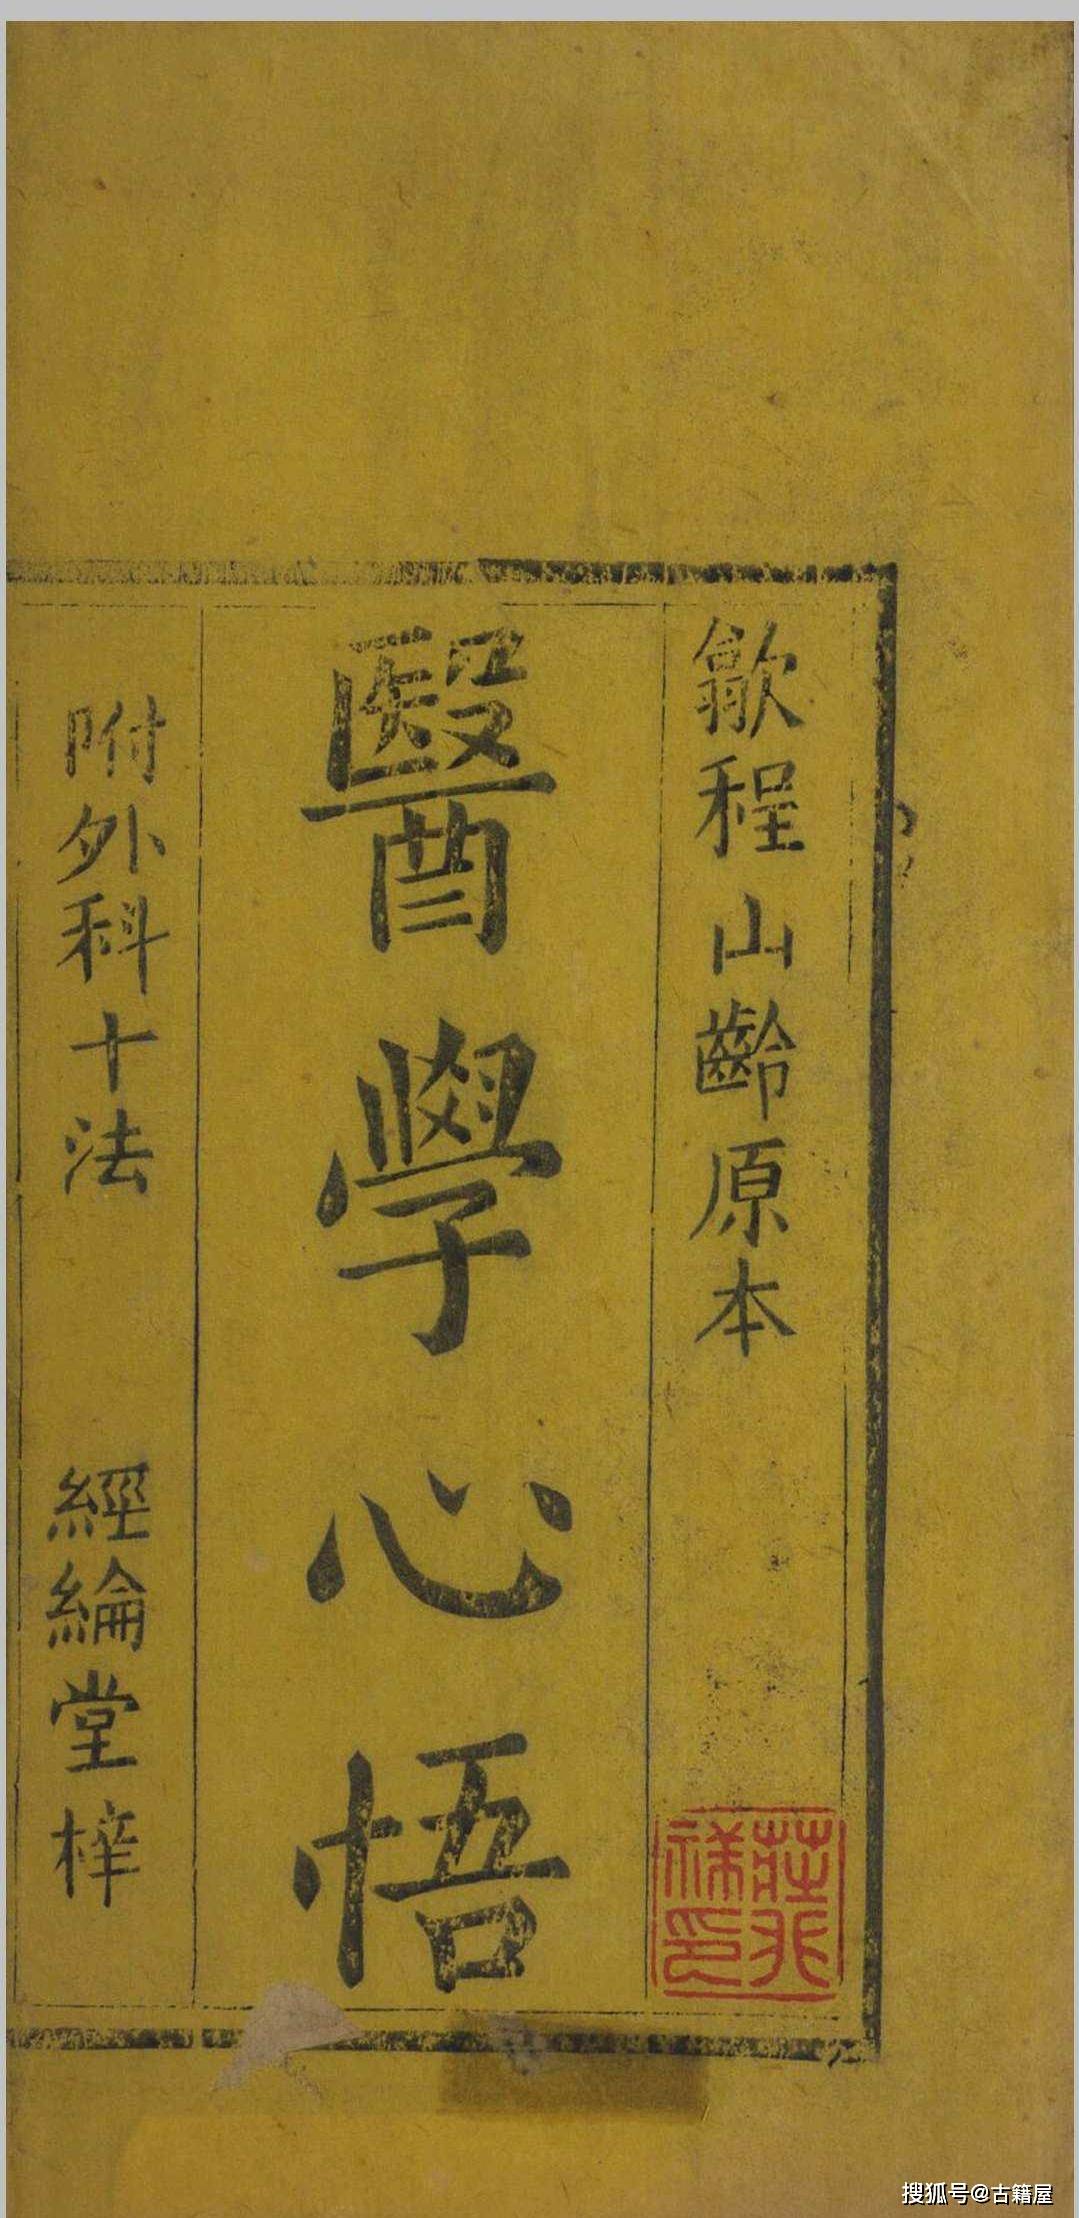 歙程山齡原本
醫學心悟
附外科十法
經綸堂梓
搜狐号@古籍屋